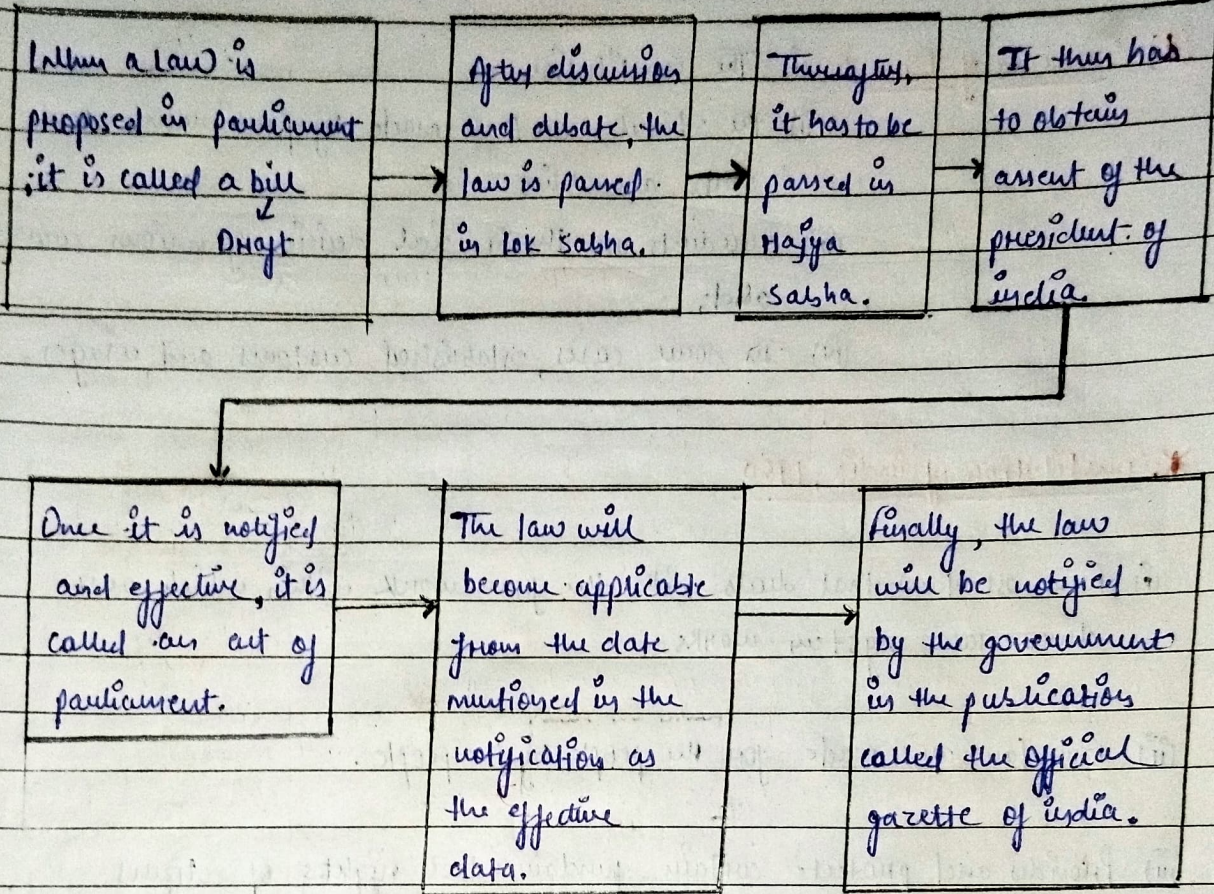 When a law is
proposed in parliament
;it is called a bill
Draft
After discussion
and debate, the
law is passed.
in lok sabha.
Thereafter,
it has to be
passed in
Rajya
Sabha.
It then has
to obtain
assent of the
president of
india.
Once it is notified
and effective, it is
called an act of
parliament.
The law will
become applicable
from the date
mentioned in the
notification as
the effective
data.
finally, the law
will be notified
by the government
in the publication
called the official
gazette of india.